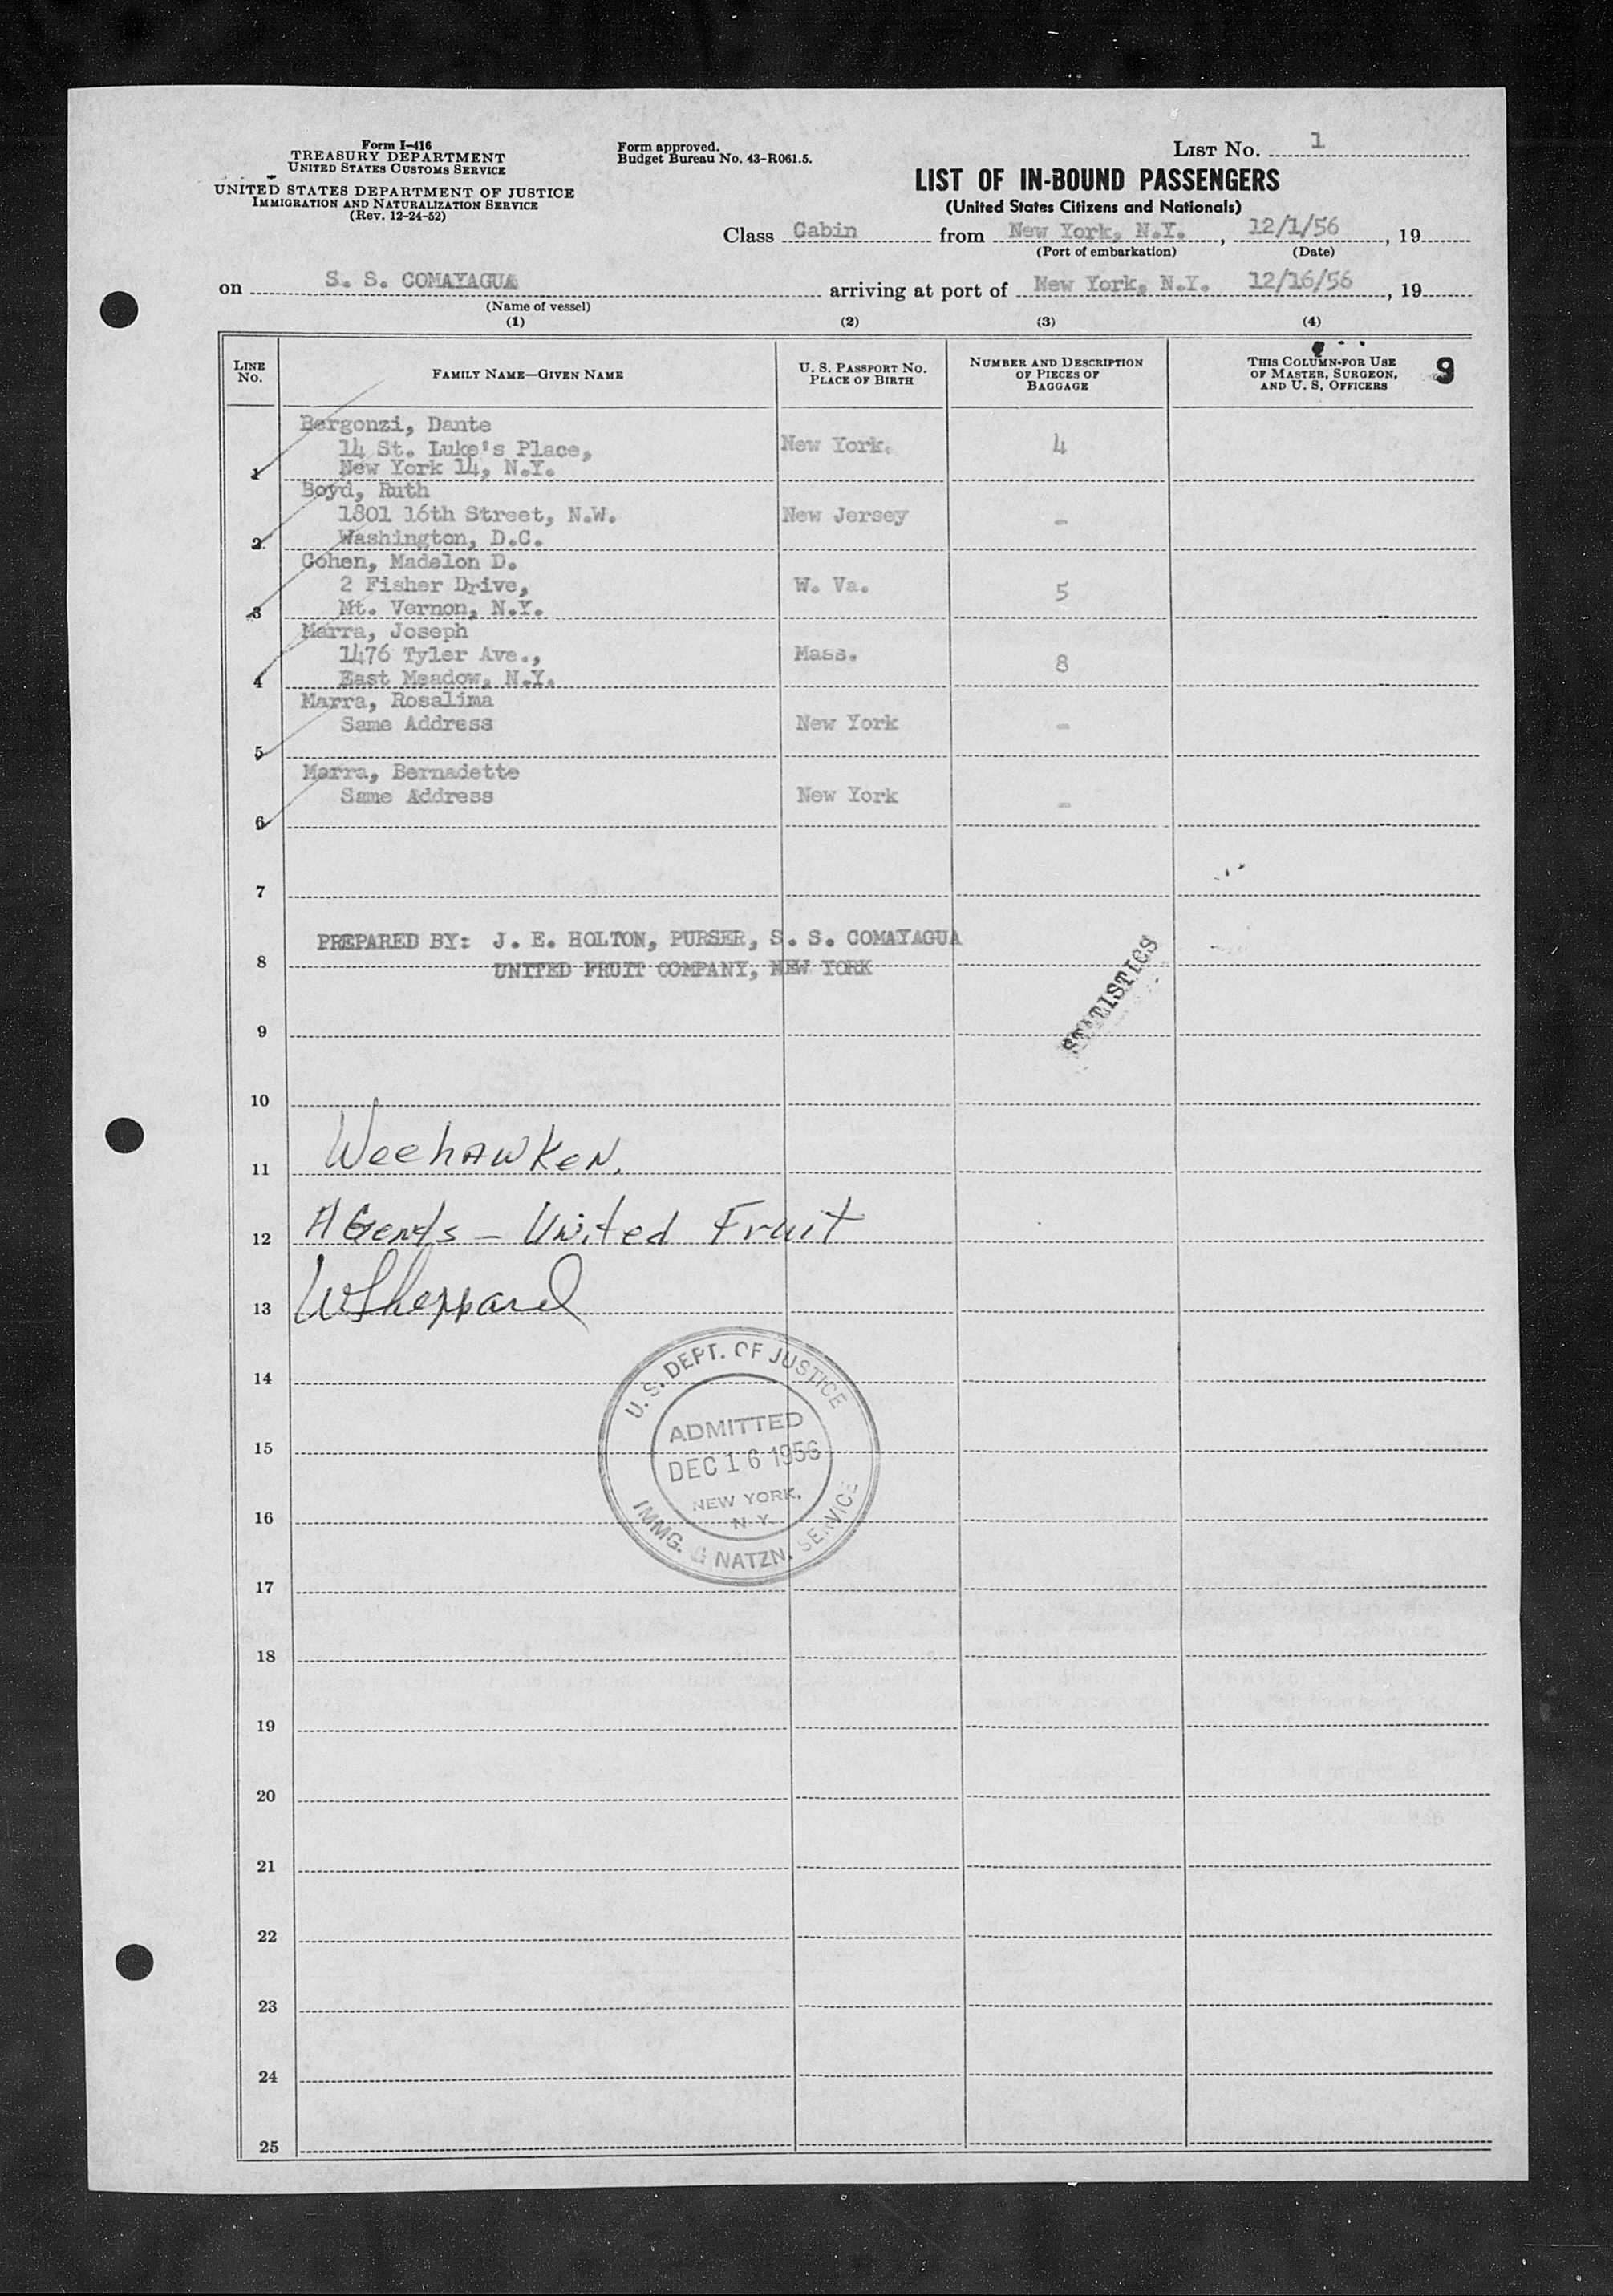 Form I-416
TREASURY DEPARTMENT
UNITED STATES CUSTOMS SERVICE
UNITED STATES DEPARTMENT OF JUSTICE
IMMIGRATION AND NATURALIZATION SERVICE
(Rev. 12-24-52)
Form approved.
Budget Bureau No. 43-R061.5.
LIST No. 1
LIST OF IN-BOUND PASSENGERS
(United States Citizens and Nationals)
Class Cabin from New York, N.Y., 12/1/56, 19
(Port of embarkation) (Date)
on S. S. COMAYAGUA arriving at port of New York, N.Y. 12/16/56, 19
(Name of vessel)
(1) (2) (3) (4)
LINE No.
FAMILY NAME—GIVEN NAME
U. S. PASSPORT NO.
PLACE OF BIRTH
NUMBER AND DESCRIPTION
OF PIECES OF
BAGGAGE
THIS COLUMN FOR USE
OF MASTER, SURGEON,
AND U. S. OFFICERS
9
Bergonzi, Dante
14 St. Luke's Place, New York. 4
1 New York 14, N.Y.
Boyd, Ruth
1801 16th Street, N.W. New Jersey -
2 Washington, D.C.
Cohen, Madelon D.
2 Fisher Drive, W. Va. 5
3 Mt. Vernon, N.Y.
Marra, Joseph
1476 Tyler Ave., Mass. 8
4 East Meadow, N.Y.
Marra, Rosalima
Same Address New York -
5
Marra, Bernadette
Same Address New York -
6
7
PREPARED BY: J. E. HOLTON, PURSER, S. S. COMAYAGUA
8 UNITED FRUIT COMPANY, NEW YORK
STATISTICS
9
10
11 Weehawken.
12 Agents - United Fruit
13 WSheppard
14
15
16
17
18
19
20
21
22
23
24
25
U. S. DEPT. OF JUSTICE
ADMITTED
DEC 16 1956
NEW YORK,
N. Y.
IMMG. & NATZN. SERVICE